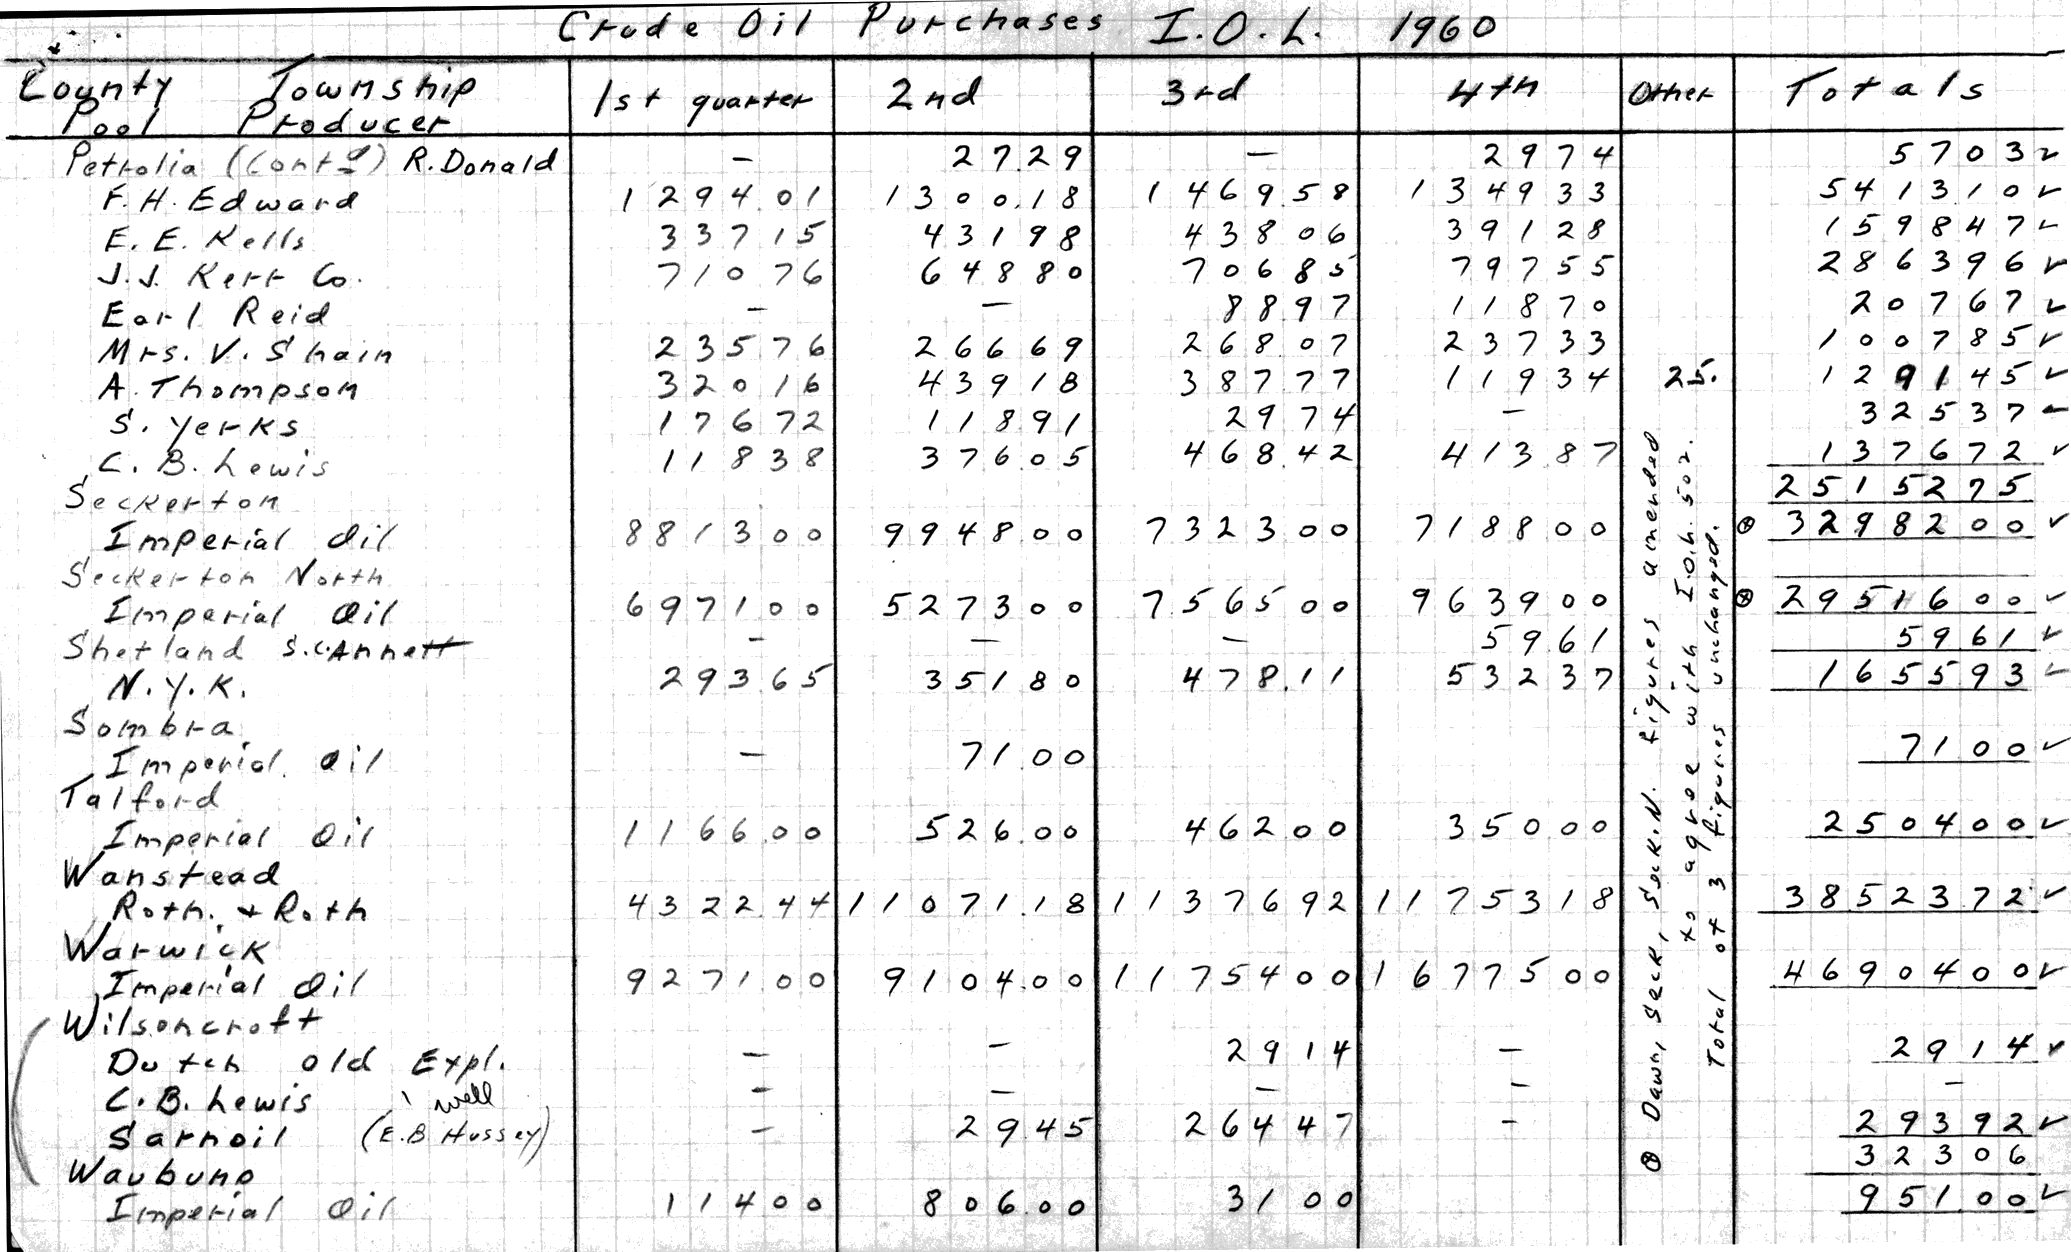 Crude Oil Purchases I.O.L. 1960
County Township 1st quarter 2nd 3rd 4th Other Totals
Pool Producer
Petrolia (Contd) R. Donald - 27.29 - 2974 5703 ✓
F. H. Edward 1294.01 1300.18 1469.58 134933 541310 ✓
E. E. Kells 33715 43198 43806 39128 159847 ✓
J. J. Kerr Co. 71076 64880 70685 79755 286396 ✓
Earl Reid - - 8897 11870 20767 ✓
Mrs. V. Shain 23576 26669 26807 23733 100785 ✓
A. Thompson 32016 43918 38777 11934 25. 129145 ✓
S. Yerks 17672 11891 2974 - 32537 ✓
C. B. Lewis 11838 376.05 468.42 413.87 137672 ✓
Seckerton 2515275
Imperial Oil 881300 994800 732300 718800 ⊗ 3298200 ✓
Seckerton North
Imperial Oil 697100 527300 7.56500 963900 ⊗ 2951600 ✓
Shetland S.C. Annett - - - 5961 5961 ✓
N.Y.K. 29365 35180 478.11 53237 165593 ✓
Sombra
Imperial Oil - 71.00 7100 ✓
Talford
Imperial Oil 1166.00 526.00 46200 35000 250400 ✓
Wanstead
Roth. + Roth 4322.44 11071.18 1137692 1175318 3852372 ✓
Warwick
Imperial Oil 9271.00 9104.00 1175400 1677500 4690400 ✓
Wilsoncroft
Dutch old Expl. - - 2914 - 2914 ✓
C. B. Lewis 1 well - - - - -
Sarnoil (E.B Hussey) - 29.45 26447 - 29392 ✓
Waubuno 32306
Imperial Oil 11400 806.00 3100 951.00 ✓
⊗ Dawn, Seck, Seck.N. figures amended
to agree with I.O.L. 502.
Total of 3 figures unchanged.